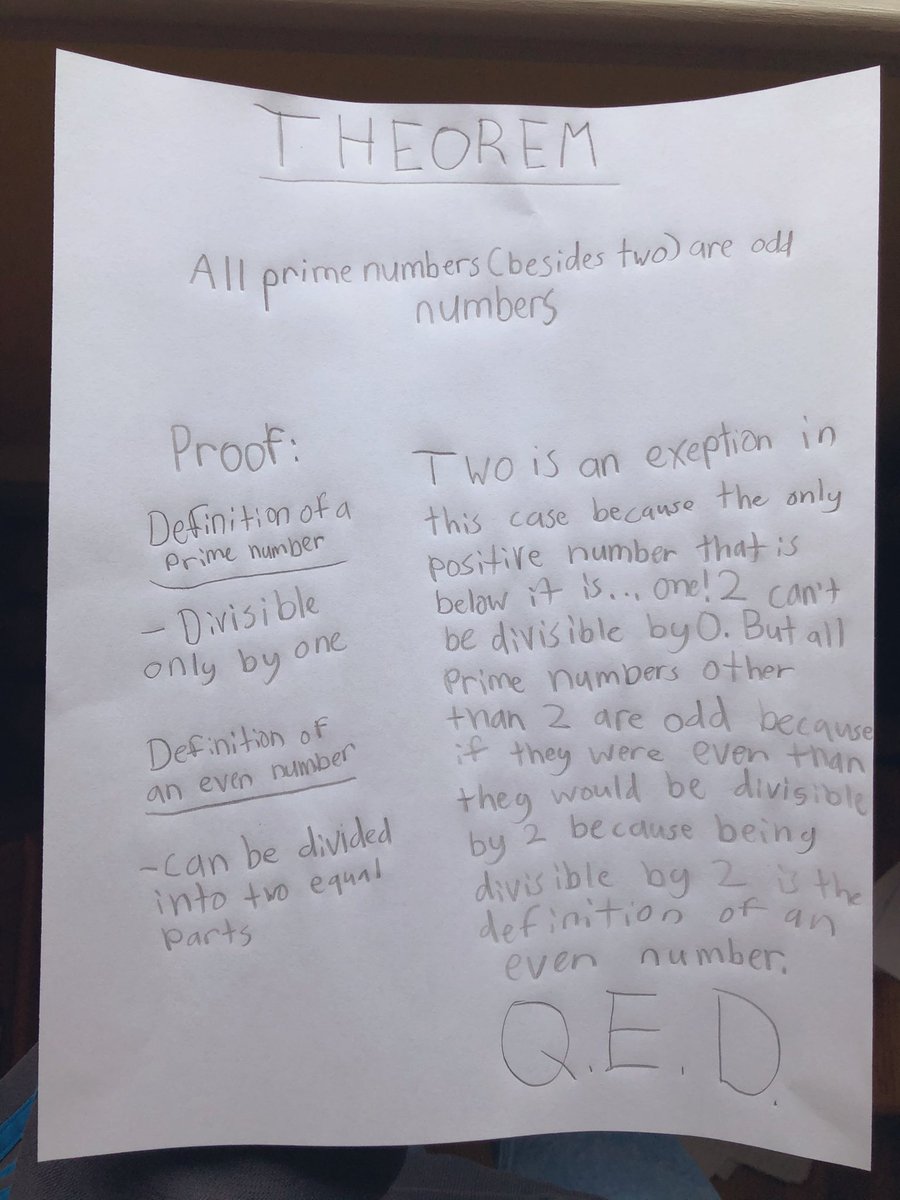 THEOREM
All prime numbers (besides two) are odd
numbers
Proof:
Definition of a
prime number
- Divisible
only by one
Definition of
an even number
-can be divided
into two equal
parts
Two is an exeption in
this case because the only
positive number that is
below it is... one! 2 can't
be divisible by 0. But all
prime numbers other
than 2 are odd because
if they were even than
they would be divisible
by 2 because being
divisible by 2 is the
definition of an
even number.
Q.E.D.